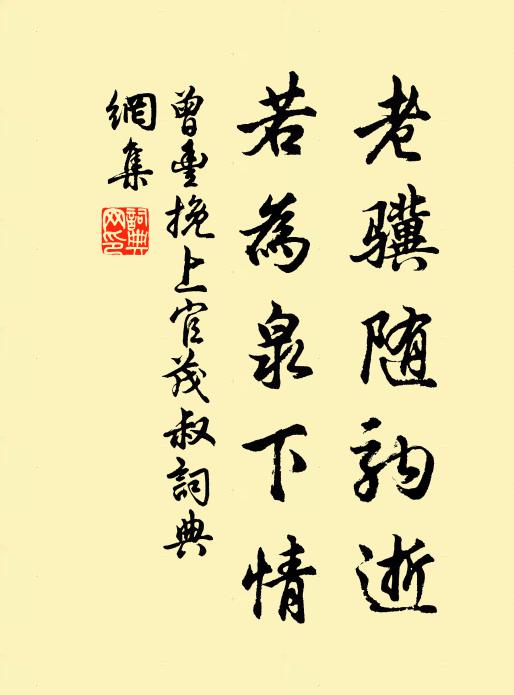 老骥随駒逝
若為泉下情
曾豐挽上官茂叔詞典
網集
詞典
网印